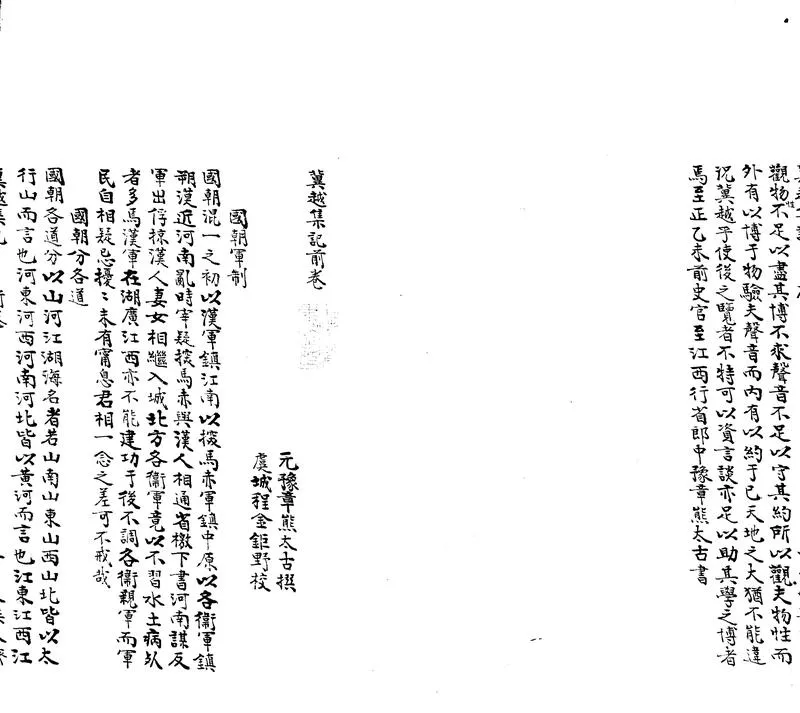 觀物性不足以盡其博不求聲音不足以守其約所以觀夫物性而
外有以博于物驗夫聲音而内有以約于已天地之大猶不能違
况冀越乎使後之覽者不特可以資言談亦足以助其學之博者
焉至正乙未前史官至江西行省郎中豫章熊太古書
冀越集記前卷
元豫章熊太古撰
虞城程金鉅野校
國朝軍制
國朝混一之初以漢軍鎮江南以探馬赤軍鎮中原以各衞軍鎮
朔漠近河南亂時宰疑探馬赤與漢人相通省檄下書河南謀反
軍出俘掠漢人妻女相繼入城北方各衞軍竟以不習水土病㱕
者多焉漢軍在湖廣江西亦不能建功于後不調各衞親軍而軍
民自相疑忌擾〻未有甯息君相一念之差可不戒哉
國朝分各道
國朝各道分以山河江湖海名者若山南山東山西山北皆以太
行山而言也河東河西河南河北皆以黄河而言也江東江西江